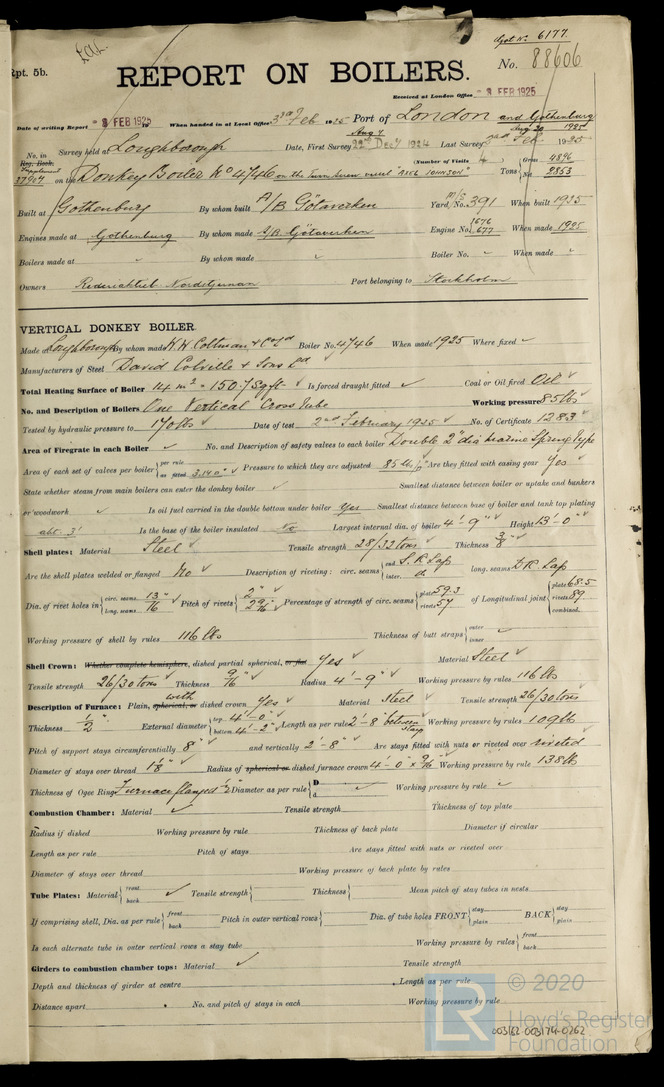 Rpt. 5b.
Got No. 6177.
No. 88606
REPORT ON BOILERS.
Received at London Office 3 FEB 1925
Date of writing Report 3 FEB 1925 When handed in at Local Office 3rd Feb 1925 Port of London and Gothenburg
No. in Reg. Book. Supplement 37907 Survey held at Loughborough Date, First Survey Aug 7 22nd Decr 1924 Last Survey Aug 20 1925 Feb 1925
(Number of Visits 4) Gross 4896
on the Donkey Boiler No 4746 on the Twin screw vessel "AXEL JOHNSON" Tons Net 2853
Built at Gothenburg By whom built A/B Götaverken Yard No. 391 When built 1925
Engines made at Gothenburg By whom made A/B Götaverken Engine No. 1676 677 When made 1925
Boilers made at By whom made Boiler No. When made
Owners Rederiaktieb. Nordstjernan Port belonging to Stockholm
VERTICAL DONKEY BOILER
Made at Loughborough By whom made H. W. Coltman & Co Ld Boiler No. 4746 When made 1925 Where fixed
Manufacturers of Steel David Colville & Sons Ld
Total Heating Surface of Boiler 14 m² = 150.7 sq ft Is forced draught fitted Coal or Oil fired Oil
No. and Description of Boilers One Vertical Cross Tube Working pressure 85 lbs
Tested by hydraulic pressure to 170 lbs Date of test 2nd February 1925 No. of Certificate 1283
Area of Firegrate in each Boiler No. and Description of safety valves to each boiler Double 2" dia marine Spring type
Area of each set of valves per boiler per rule as fitted 3.14 □" Pressure to which they are adjusted 85 lb/□" Are they fitted with easing gear Yes
State whether steam from main boilers can enter the donkey boiler Smallest distance between boiler or uptake and bunkers
or woodwork Is oil fuel carried in the double bottom under boiler Yes Smallest distance between base of boiler and tank top plating
abt. 3' Is the base of the boiler insulated Largest internal dia. of boiler 4'-9" Height 13'-0"
Shell plates: Material Steel Tensile strength 28/32 tons Thickness 3/8"
Are the shell plates welded or flanged No Description of riveting: circ. seams end S.R. Lap inter. do long. seams D.R. Lap
Dia. of rivet holes in circ. seams 13/16" long. seams Pitch of rivets 2" 2 9/16" Percentage of strength of circ. seams plate 59.3 rivets 57 of Longitudinal joint plate 68.5 rivets 89 combined.
Working pressure of shell by rules 116 lbs Thickness of butt straps outer inner
Shell Crown: Whether complete hemisphere, dished partial spherical, or flat Yes Material Steel
Tensile strength 26/30 tons Thickness 9/16" Radius 4'-9" Working pressure by rules 116 lbs
Description of Furnace: Plain, spherical, or with dished crown Yes Material Steel Tensile strength 26/30 tons
Thickness 1/2" External diameter top 4'-0" bottom 4'-2" Length as per rule 2'-8" between stays Working pressure by rules 109 lbs
Pitch of support stays circumferentially 8" and vertically 2'-8" Are stays fitted with nuts or riveted over riveted
Diameter of stays over thread 1 1/8" Radius of spherical or dished furnace crown 4'-0" x 9/16" Working pressure by rule 138 lbs
Thickness of Ogee Ring Furnace flanged 1/2 Diameter as per rule D d Working pressure by rule
Combustion Chamber: Material Tensile strength Thickness of top plate
Radius if dished Working pressure by rule Thickness of back plate Diameter if circular
Length as per rule Pitch of stays Are stays fitted with nuts or riveted over
Diameter of stays over thread Working pressure of back plate by rules
Tube Plates: Material front back Tensile strength Thickness Mean pitch of stay tubes in nests
If comprising shell, Dia. as per rule front back Pitch in outer vertical rows Dia. of tube holes FRONT stay plain BACK stay plain
Is each alternate tube in outer vertical rows a stay tube Working pressure by rules front back
Girders to combustion chamber tops: Material Tensile strength
Depth and thickness of girder at centre Length as per rule
Distance apart No. and pitch of stays in each Working pressure by rule
LR © 2020
Lloyd's Register
Foundation
003162-003174-0262